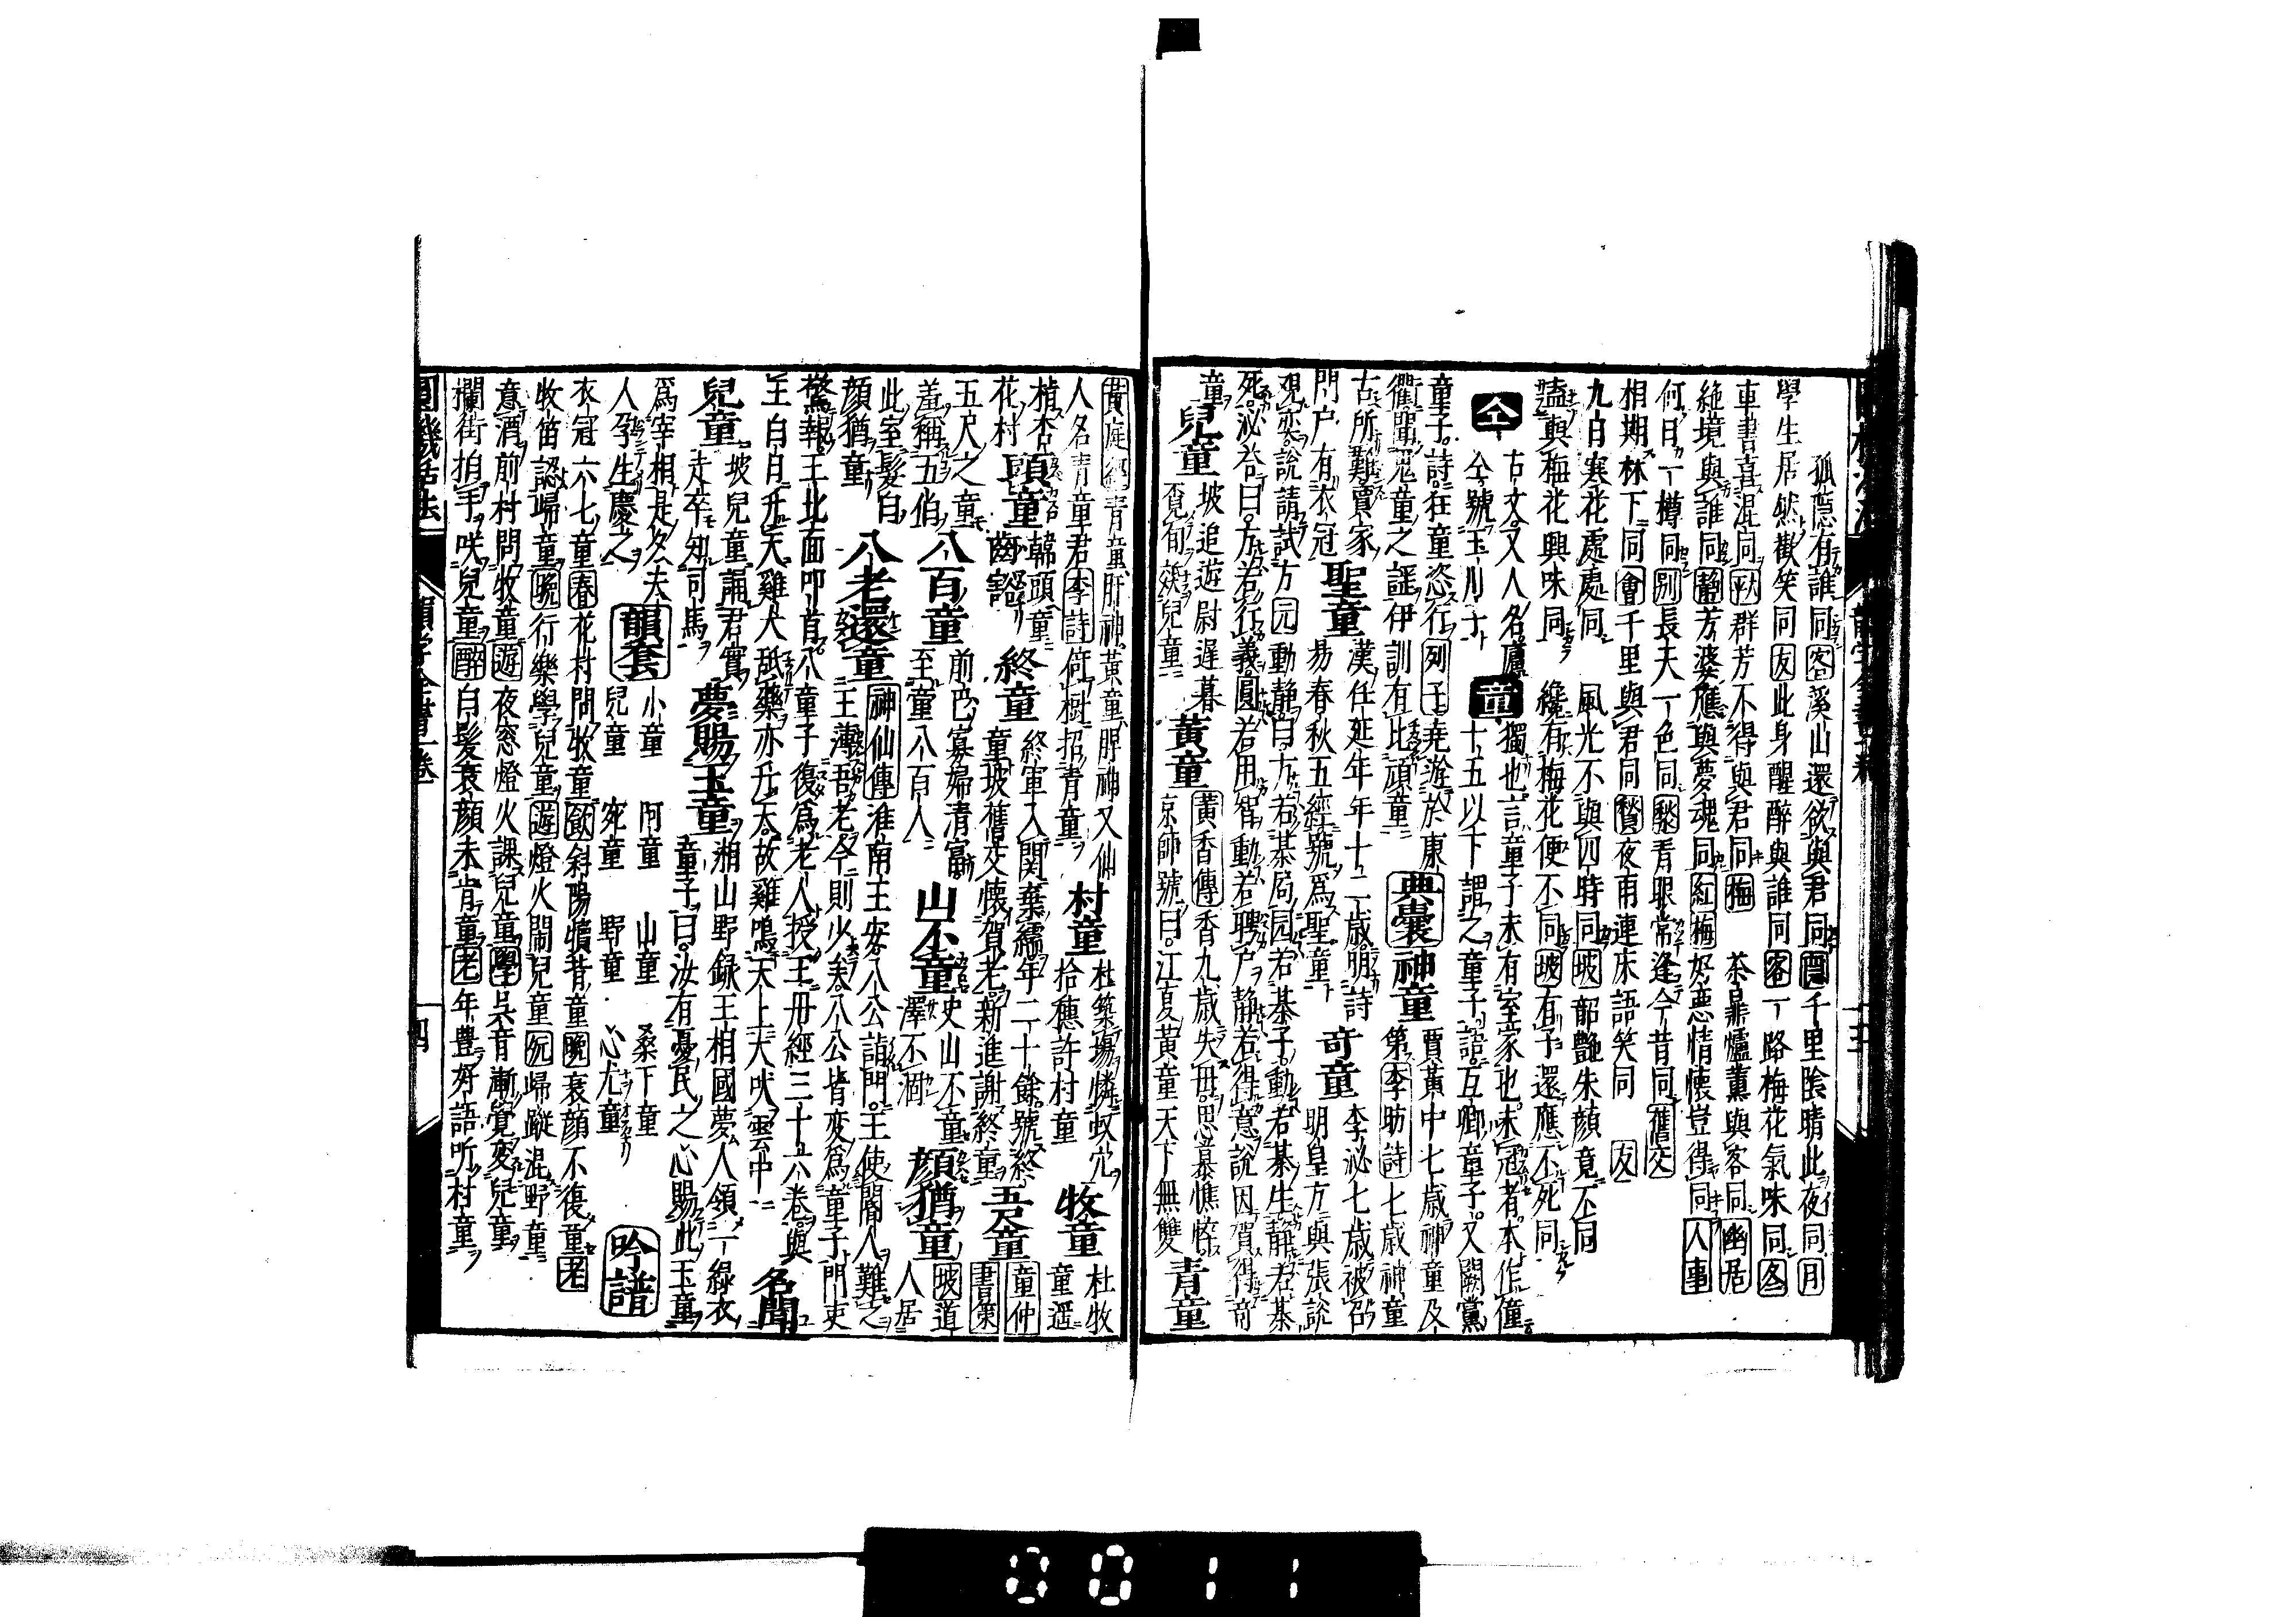 孤隱有誰同客溪山還欲與君同千里陰晴此夜同月
學生居然歡笑同友此身醒醉與誰同客一路梅花氣味同冬
車書喜混同秋群芳不得與君同梅 茶鼎爐薰與客同幽居
絶境與誰同靜芳婆應與夢魂同紅梅好惡情懷豈得同人事
何日一樽同別長天一色同愁青眼常逢今昔同舊交
相期林下同會千里與君同賢夜雨連床語笑同 友
九日寒花處處同 風光不與四時同坡韶艶朱顏竟不同
與梅花興味同 纔有梅花便不同坡有子還應不死同
仝 古文又人名盧仝號玉川子 童 獨也言童子未有室家也未冠者本作僮
十五以下謂之童子語互鄉童子又闕黨
童子詩狂童恣行列子堯遊於東
衢聞兒童之謡伊訓有比頑童 典囊神童 賈黃中七歲神童及
第李昉詩七歲神童
古所難賣家 漢任延年年十二歲明詩
門戶有衣冠 聖童 易春秋五經號爲聖童 奇童 李泌七歲被召
明皇方與張說
觀奕說請試方元動靜曰方若棊局圓若棊子動若棊生靜若棊
死泌答曰方若行義圓若用智動若聘戶靜若得意說因賀得奇
童兒童 坡追遊尉遲暮
覓句效兒童 黃童 黃香傳香九歲失母思慕憔悴
京師號曰江夏黃童天下無雙 青童
黃庭經青童肝神黃童脾神又仙
人名青童君李詩倚樹招青童 村童 杜築場憐蚁穴
拾穗許村童 牧童 杜牧
童遥
花村 頭童 韓頭童
齒豁 終童 終軍入關棄繻年二十餘號終
童坡舊交懷賀老新進謝終童 五尺童 童仲
書策
五尺之童
羞稱五伯 八百童 前巴寡婦清富
至童八百人 山不童 史山不童
澤不涸 顏猶童 坡道
人居
此室髮白
顏猶童 八老還童 神仙傳淮南王安八公詣門王使閽人難之
王薄吾老今則少矣八公皆変爲童子門吏
驚報王北面叩首八童子復爲老人授王丹經三十六卷與
王白日升天雞犬舐藥亦升天故雞鳴天上犬吠雲中 名聞
兒童 坡兒童誦君實
走卒知司馬 夢賜玉童 湘山野録王相國夢人領一緑衣
童子曰汝有憂民之心賜此玉童
爲宰相是久夫
人孕生慶之 韻套 小童 阿童 山童 桑下童
兒童 宛童 野童 心尤童 吟譜
衣冠六七童春花村問牧童飲斜陽犢背童晩衰顏不復童老
牧笛認歸童晩行樂學兒童遊燈火鬧兒童 歸蹤混野童
意酒前村問牧童遊夜窓燈火課兒童學呉音漸覺変兒童
攔街拍手咲兒童醉白髮衰顏未肯童老年豊好語听村童
四
0011